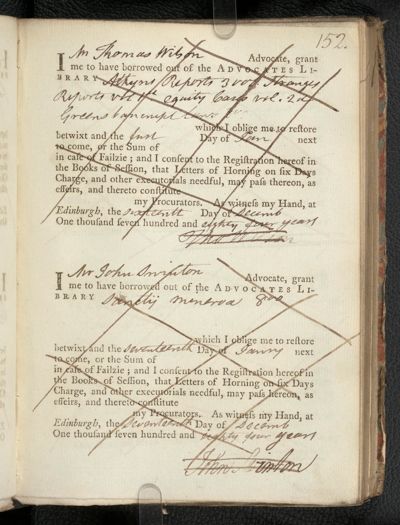 152.
I Mr Thomas Wilson Advocate, grant
me to have borrowed out of the ADVOCATES LI-
BRARY Atkyns Reports 3 vols. Stranges
Reports vol equity Cases vol. 2d
Greens bankrupt Laws
which I oblige me to restore
betwixt and the first Day of Jan next
to come, or the Sum of
in case of Failzie; and I consent to the Registration hereof in
the Books of Session, that Letters of Horning on six Days
Charge, and other executorials needful, may pass thereon, as
effeirs, and thereto constitute
my Procurators. As witness my Hand, at
Edinburgh, the sixteenth Day of Decemb
One thousand seven hundred and eighty four years
Tho Wilson
I Mr John Swinton Advocate, grant
me to have borrowed out of the ADVOCATES LI-
BRARY Sanctij minerva 8vo
which I oblige me to restore
betwixt and the seventeenth Day of Janry next
to come, or the Sum of
in case of Failzie; and I consent to the Registration hereof in
the Books of Session, that Letters of Horning on six Days
Charge, and other executorials needful, may pass hereon, as
effeirs, and thereto constitute
my Procurators. As witness my Hand, at
Edinburgh, the seventeenth Day of Decemb
One thousand seven hundred and eighty four years
John Swinton